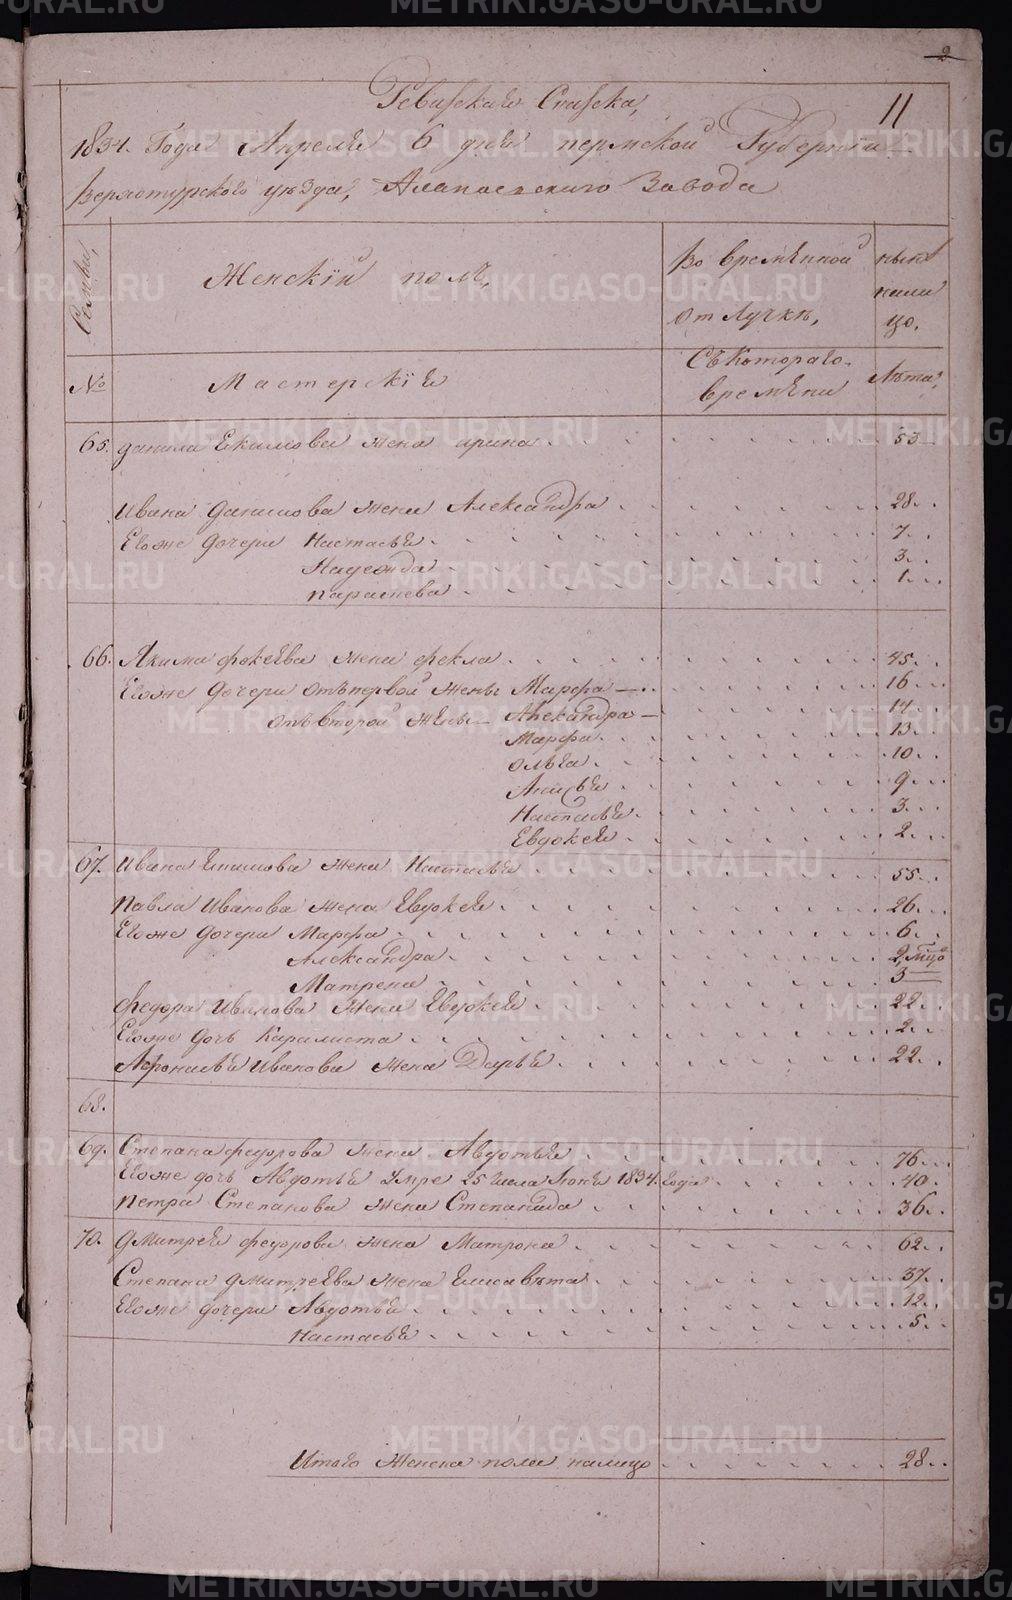 2
11
Ревизская Сказка,
1834. Года Апреля 6 дня пермской Губернии
Верхотурского уѣзда, Алапаевского Завода
Семьи,
Женскій полъ,
Во временной отлучкѣ,
нынѣ налицо.
№
Мастерскія
Съ котораго времѣни
Лѣта,
65. данила Екимова жена арина 53
Ивана данилова жена Александра 28
Егоже дочери Настасья 7
Надежда 3
парасковья 1
66. Якима фокеева жена фекла 45
Егоже дочери отъ первой жены Марфа 16
отъ второй жены Александра 14
Марфа 13
ольга 10
Анисья 9
Настасья 3
Евдокея 2
67. Ивана жена Настасья 55
Павла Иванова жена Евдокея 26
Егоже дочери Марфа 6
Александра 2
Матрена 3
федора Иванова жена Евдокея 22
Егоже дочь 2
Афонасья Иванова жена Дарья 22
68.
69. Степана федорова жена Авдотья 76
Егоже дочь Авдотья Умре 25 числа Июня 1834. года 40
Петра Степанова жена Степанида 36
70. дмитрея федорова жена Матрона 62
Степана дмитреева жена Елисавѣта 37
Егоже дочери Авдотья 12
Настасья 5
Итого Женска пола налицо 28
METRIKI.GASO-URAL.RU